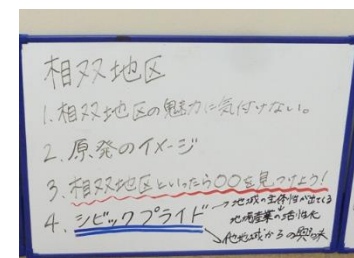 相双地区
1.相双地区の魅力に気付けない。
2.原発のイメージ
3.相双地区といったら〇〇を見つけよう!
4.シビックプライド
→地域の主体性が出てくる
地場産業の活性化
→他地域からの興味